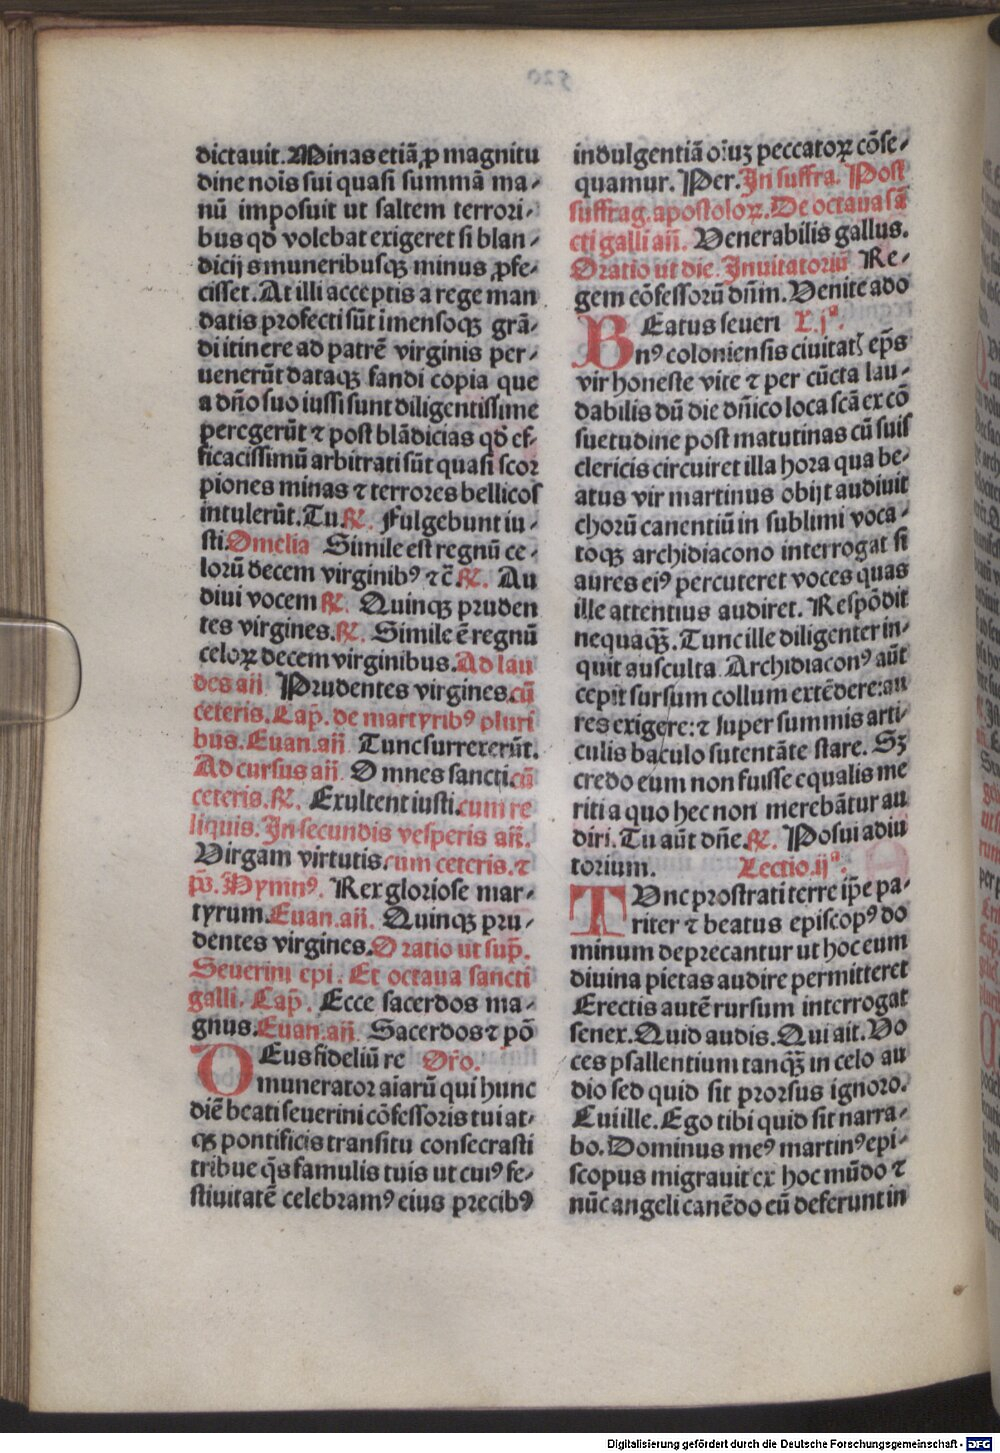 520
dictauit. Minas etiā ꝓ magnitu
dine nōis sui quasi summā ma⸗
nū imposuit ut saltem terrori⸗
bus qđ volebat exigeret si blan⸗
dicijs muneribusqꝫ minus ꝓfe⸗
cisset. At illi acceptis a rege man
datis profecti sūt īmensoqꝫ grā⸗
di itinere ad patrē virginis per⸗
uenerūt dataqꝫ fandi copia que
a dño suo iussi sunt diligentissime
peregerūt ⁊ post blādicias qđ ef⸗
ficacissimū arbitrati sūt quasi scor
piones minas ⁊ terrores bellicos
intulerūt. Tu. ℟. Fulgebunt iu⸗
sti. Omelia Simile est regnū ce⸗
lorū decem virginibꝰ ⁊c̄. ℟. Au
diui vocem ℟. Quinqꝫ pruden
tes virgines. ℟. Simile ē regnū
celoꝝ decem virginibus. Ad lau
des añ Prudentes virgines. cū
ceteris. Cap̄. de martyribꝰ pluri
bus. Euan. añ Tunc surrexerūt.
Ad cursus añ Omnes sancti. cū
ceteris. ℟. Exultent iusti. cum re
liquis. In secundis vesperis añ.
Virgam virtutis. cum ceteris. ⁊
p̄s. Hymnꝰ. Rex gloriose mar⸗
tyrum. Euan. añ. Quinqꝫ pru⸗
dentes virgines. Oratio ut sup̄.
Seuerini epi. Et octaua sancti
galli. Cap̄. Ecce sacerdos ma⸗
gnus. Euan. añ Sacerdos ⁊ pō
DEus fideliū re Oro.
munerator aīarū qui hunc
diē beati seuerini cōfessoris tui at⸗
qꝫ pontificis transitu consecrasti
tribue q̄s famulis tuis ut cuiꝰ fe⸗
stiuitatē celebramꝰ eius precibꝰ
indulgentiā oīuꝫ peccatoꝝ cōse⸗
quamur. Per. In suffra. Post
suffrag. apostoloꝝ. De octaua sā
cti galli añ. Venerabilis gallus.
Oratio ut die. Inuitatoriū Re⸗
gem cōfessorū dñm. Venite ado
BEatus seueri L. jᵃ.
nꝰ coloniensis ciuitatꝭ ep̄s
vir honeste vite ⁊ per cūcta lau⸗
dabilis dū die dñico loca scā ex cō
suetudine post matutinas cū suis
clericis circuiret illa hora qua be⸗
atus vir martinus obijt audiuit
chorū canentiū in sublimi voca⸗
toqꝫ archidiacono interrogat si
aures eiꝰ percuteret voces quas
ille attentius audiret. Respōdit
nequaqꝫ. Tunc ille diligenter in⸗
quit ausculta. Archidiaconꝰ aūt
cepit sursum collum extēdere: au
res erigere: ⁊ super summis arti⸗
culis baculo sutentāte stare. Sꝫ
credo eum non fuisse equalis me
riti a quo hec non merebātur au
diri. Tu aūt dñe. ℟. Posui adiu
torium. Lectio. ijᵃ.
TUnc prostrati terre ip̄e pa⸗
riter ⁊ beatus episcopꝰ do
minum deprecantur ut hoc eum
diuina pietas audire permitteret
Erectis autē rursum interrogat
senex. Quid audis. Qui ait. Vo
ces psallentium tanqꝫ in celo au
dio sed quid sit prorsus ignoro.
Cui ille. Ego tibi quid sit narra⸗
bo. Dominus meꝰ martinꝰ epi⸗
scopus migrauit ex hoc mūdo ⁊
nūc angeli canēdo eū deferunt in
Digitalisierung gefördert durch die Deutsche Forschungsgemeinschaft - DFG